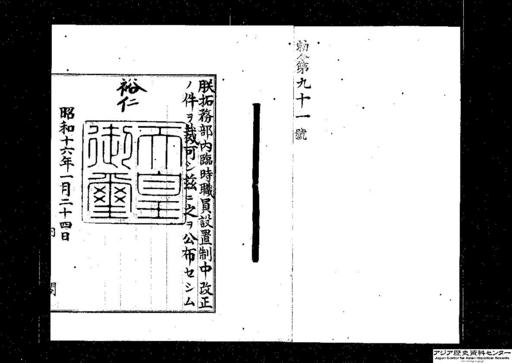 勅令第九十一號
朕拓務部內臨時職員設置制中改正
ノ件ヲ裁可シ玆ニ之ヲ公布セシム
裕仁
天皇御璽
昭和十六年一月二十四日
內閣
アジア歴史資料センター
Japan Center for Asian Historical Records